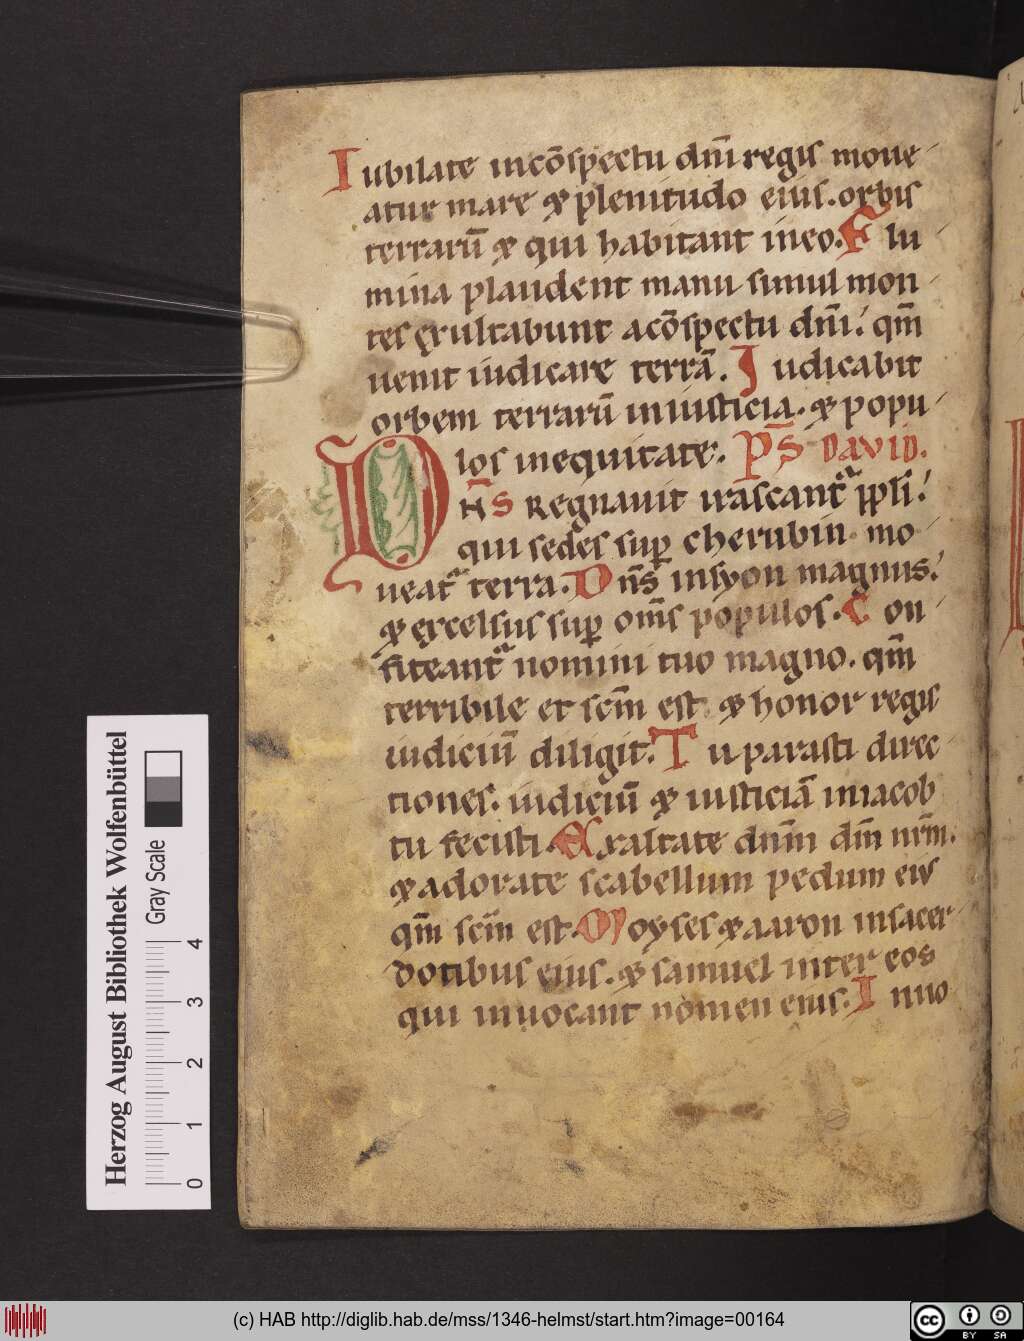 Iubilate in cōspectu dn̄i regis moue
atur mare & plenitudo eius. orbis
terrarū & qui habitant in eo. Flu
mina plaudent manu simul mon
tes exultabunt a cōspectu dn̄i. qm̄
uenit iudicare terrā. Iudicabit
orbem terrarū in iusticia. & popu
los in equitate. Ps̄ DAVID.
DN̄S Regnauit irascant᷑ ppl̄i.
qui sedes sup̱ cherubin mo
ueat᷑ terra. Dn̄s in syon magnus.
& excelsus sup̱ om̄s populos. Con
fiteant᷑ nomini tuo magno. qm̄
terribile et sc̄m est & honor regis
iudiciū diligit. Tu parasti direc
tiones. iudiciū & iusticiā in iacob
tu fecisti. Exaltate dn̄m dm̄ nr̄m.
& adorate scabellum pedum eius
qm̄ sc̄m est. Moyses & aaron in sacer
dotibus eius. & samuel inter eos
qui inuocant nomen eius. Inuo
Herzog August Bibliothek Wolfenbüttel
Gray Scale
0 1 2 3 4
(c) HAB http://diglib.hab.de/mss/1346-helmst/start.htm?image=00164
cc BY SA